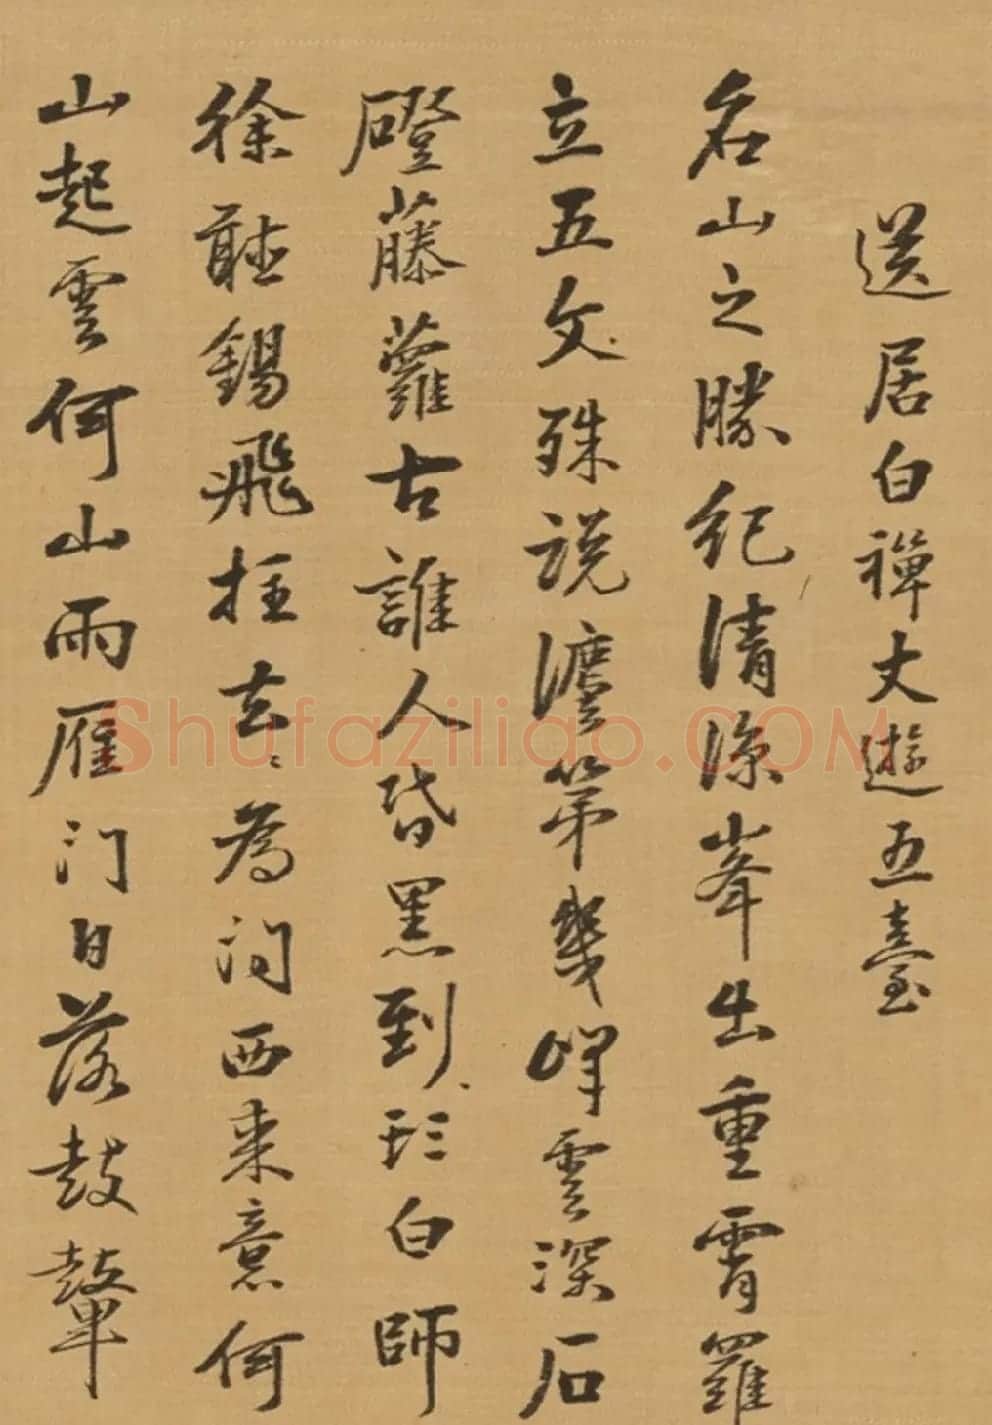 送居白禪丈遊五臺
名山之勝紀清涼峯出重霄羅
立五文殊說澧第幾峰雲深石
磴藤蘿古誰人昏黑到珎白師
徐聽錫飛拄去〻為问西来意何
山起雲何山雨雁门日落鼓鼙
Shufaziliao.COM